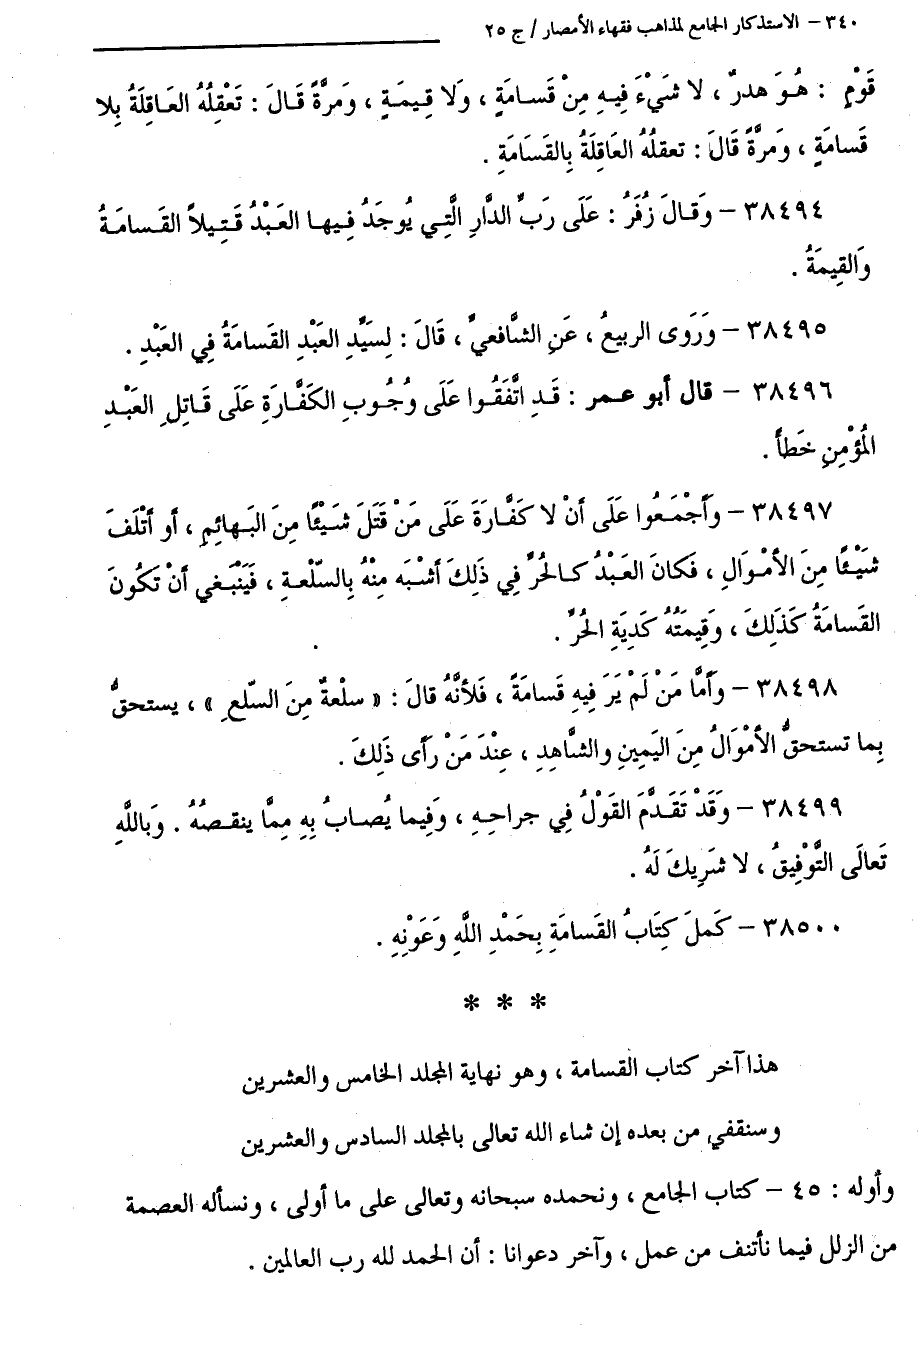 ٣٤٠ – الاستذكار الجامع لمذاهب فقهاء الأمصار / ج ٢٥
قَوْمٍ : هُوَ هدرٌ ، لا شَيْءَ فِيهِ مِنْ قَسامَةٍ ، وَلا قِيمَةٍ ، وَمرَّةً قَالَ : تَعْقِلُهُ العَاقِلَةُ بِلا
قَسامَةٍ ، وَمرَّةً قَالَ : تعقلُهُ العَاقِلَةُ بِالقَسَامَةِ .
٣٨٤٩٤ – وَقالَ زُفَرُ : عَلَى رَبِّ الدَّارِ الَّتِي يُوجَدُ فِيها العَبْدُ قَتِيلاً القَسامَةُ
وَالقِيمَةُ .
٣٨٤٩٥ – وَرَوى الربيعُ ، عَنِ الشَّافعيِّ ، قَالَ : لِسَيِّدِ العَبْدِ القَسامَةُ فِي العَبْدِ .
٣٨٤٩٦ – قال أبو عمر : قَدِ اتَّفَقُوا عَلَى وُجُوبِ الكَفَّارَةِ عَلَى قَاتِلِ العَبْدِ
المُؤْمِنِ خَطأ .
٣٨٤٩٧ – وَأَجْمَعُوا عَلَى أنْ لا كَفَّارَةَ عَلَى مَنْ قَتَلَ شَيْئًا مِنَ البَهائِمِ ، أو أتْلَفَ
شَيْئًا مِنَ الأمْوَالِ ، فَكانَ العَبْدُ كالحُرِّ فِي ذَلِكَ أشْبَه مِنْهُ بِالسِّلْعةِ ، فَيَنْبَغي أنْ تَكُونَ
القَسامَةُ كَذَلِكَ ، وَقِيمَتُهُ كَدِيَةِ الحُرِّ .
٣٨٤٩٨ – وَأمَّا مَنْ لَمْ يَرَ فِيهِ قَسامَةً ، فَلأنَّهُ قالَ : « سلْعةٌ مِنَ السِّلعِ » ، يستحقُّ
بِما تستحقُّ الأمْوَالُ مِنَ اليَمِينِ والشَّاهِدِ ، عِنْدَ مَنْ رَأى ذَلِكَ .
٣٨٤٩٩ – وَقَدْ تَقَدَّمَ القَوْلُ فِي جراحِهِ ، وَفِيما يُصابُ بِهِ مِمَّا ينقصُهُ . وَبِاللَّهِ
تَعالَى التَّوْفِيقُ ، لا شَرِيكَ لَهُ .
٣٨٥٠٠ – كَملَ كِتَابُ القَسامَةِ بِحَمْدِ اللَّهِ وَعَوْنِهِ .
* * *
هذا آخر كتاب القسامة ، وهو نهاية المجلد الخامس والعشرين
وسنقفي من بعده إن شاء الله تعالى بالمجلد السادس والعشرين
وأوله : ٤٥ – كتاب الجامع ، ونحمده سبحانه وتعالى على ما أولى ، ونسأله العصمة
من الزلل فيما نأتنف من عمل ، وآخر دعوانا : أن الحمد لله رب العالمين .